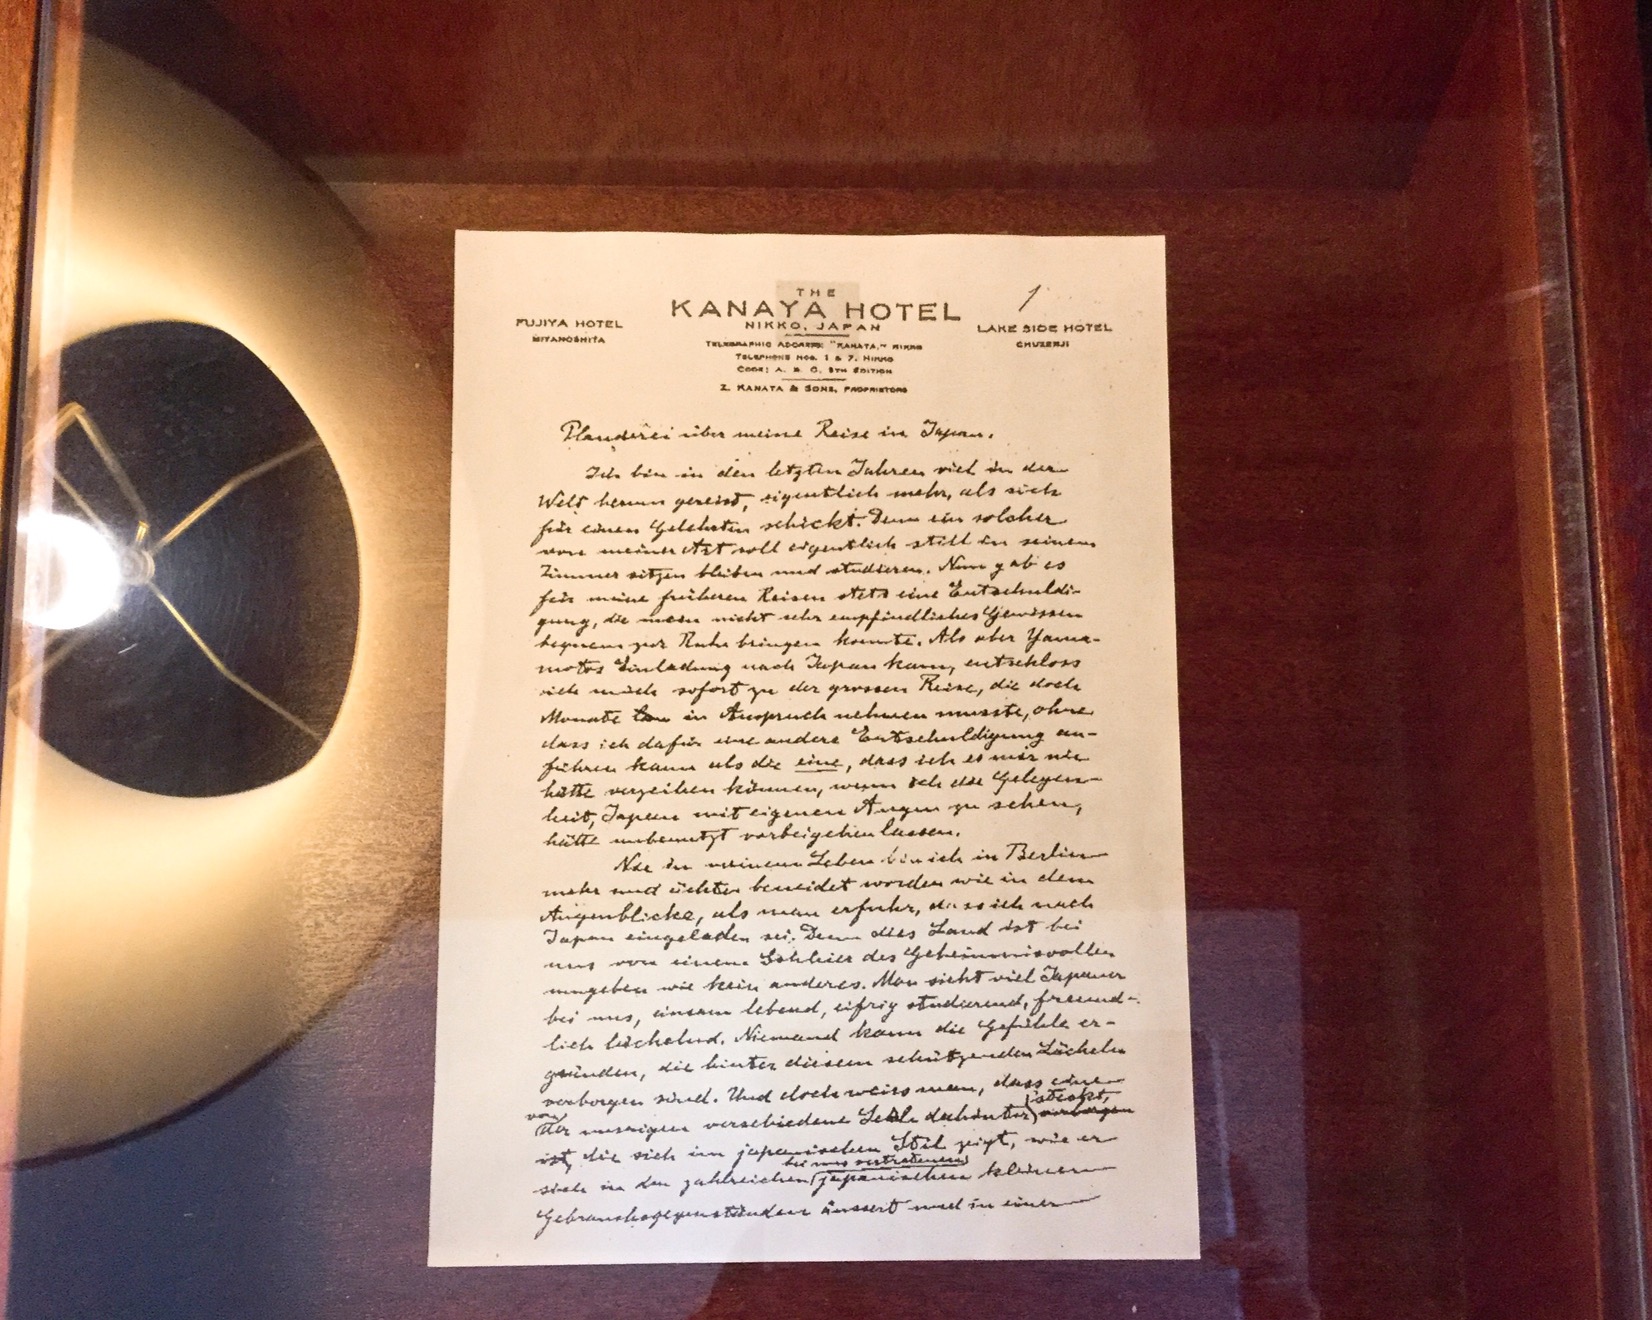 1
THE
KANAYA HOTEL
NIKKO, JAPAN
FUJIYA HOTEL
MIYANOSHITA
LAKE SIDE HOTEL
CHUZENJI
TELEGRAPHIC ADDRESS: "KANAYA," NIKKO
TELEPHONE NOS. 1 & 7. NIKKO
CODE: A. B. C. 5TH EDITION
Z. KANAYA & SONS, PROPRIETORS
Plauderei über meine Reise in Japan.
Ich bin in den letzten Jahren viel in der
Welt herum gereist, eigentlich mehr, als sich
für einen Gelehrten schickt. Denn ein solcher
von meiner Art soll eigentlich still in seinem
Zimmer sitzen bleiben und studieren. Nun gab es
für meine früheren Reisen stets eine Entschuldi-
gung, die mein nicht sehr empfindliches Gewissen
bequem zur Ruhe bringen konnte. Als aber Yama-
motos Einladung nach Japan kam, entschloss
ich mich sofort zu der grossen Reise, die doch
Monate in Anspruch nehmen musste, ohne
dass ich dafür eine andere Entschuldigung an-
führen kann als die eine, dass ich es mir nie
hätte verzeihen können, wenn ich die Gelegen-
heit, Japan mit eigenen Augen zu sehen,
hätte unbenutzt vorbeigehen lassen.
Nie in meinem Leben bin ich in Berlin
mehr und ächter beneidet worden wie in dem
Augenblicke, als man erfuhr, dass ich nach
Japan eingeladen sei. Denn dies Land ist bei
uns von einem Schleier des Geheimnisvollen
umgeben wie kein anderes. Man sieht viel Japaner
bei uns, einsam lebend, eifrig studierend, freund-
lich lächelnd. Niemand kann die Gefühle er-
gründen, die hinter diesem schützenden Lächeln
verborgen sind. Und doch weiss man, dass eine
von der unsrigen verschiedene Seele dahinter steckt, verborgen
ist, die sich im japanischen Stil zeigt, wie er
sich in den zahlreichen bei uns vertretenen japanischen kleinen
Gebrauchsgegenständen äussert und in einer